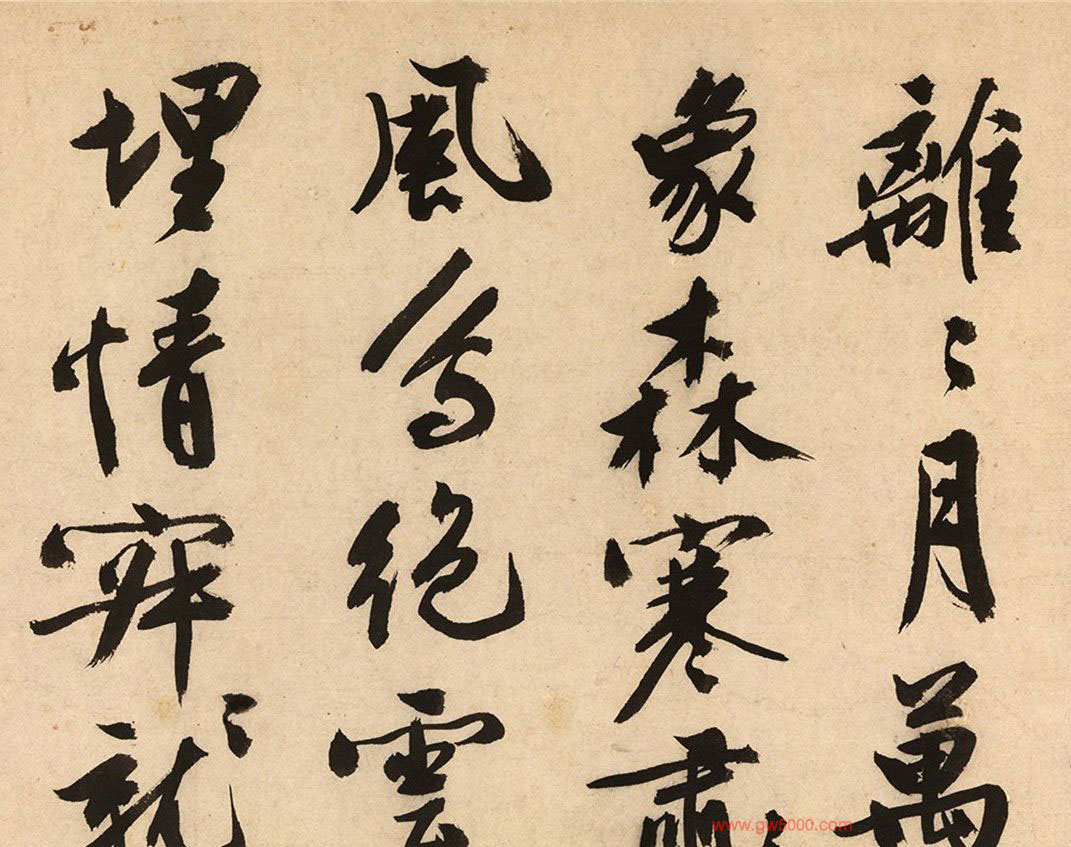 離〻月萬
象森寒肅
風絕雲
埋情
www.gw5000.com